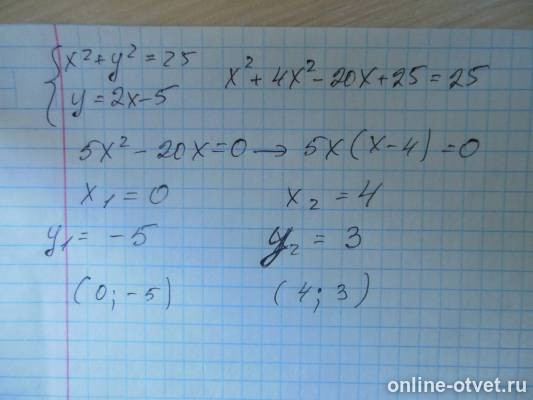 { x² + y² = 25
y = 2x - 5
x² + 4x² - 20x + 25 = 25
5x² - 20x = 0 → 5x (x - 4) = 0
x₁ = 0 x₂ = 4
y₁ = -5 y₂ = 3
(0; -5) (4; 3)
online-otvet.ru